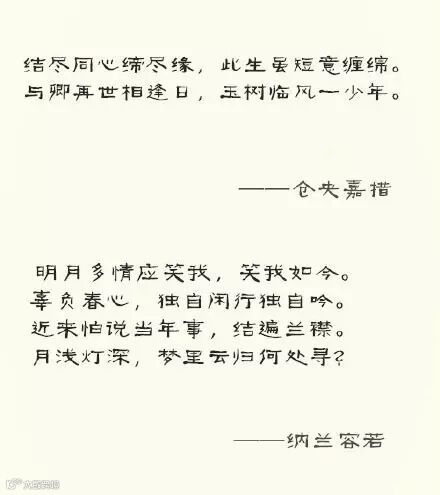 结尽同心缔尽缘，此生虽短意缠绵。
与卿再世相逢日，玉树临风一少年。
——仓央嘉措
明月多情应笑我，笑我如今。
辜负春心，独自闲行独自吟。
近来怕说当年事，结遍兰襟。
月浅灯深，梦里云归何处寻？
——纳兰容若